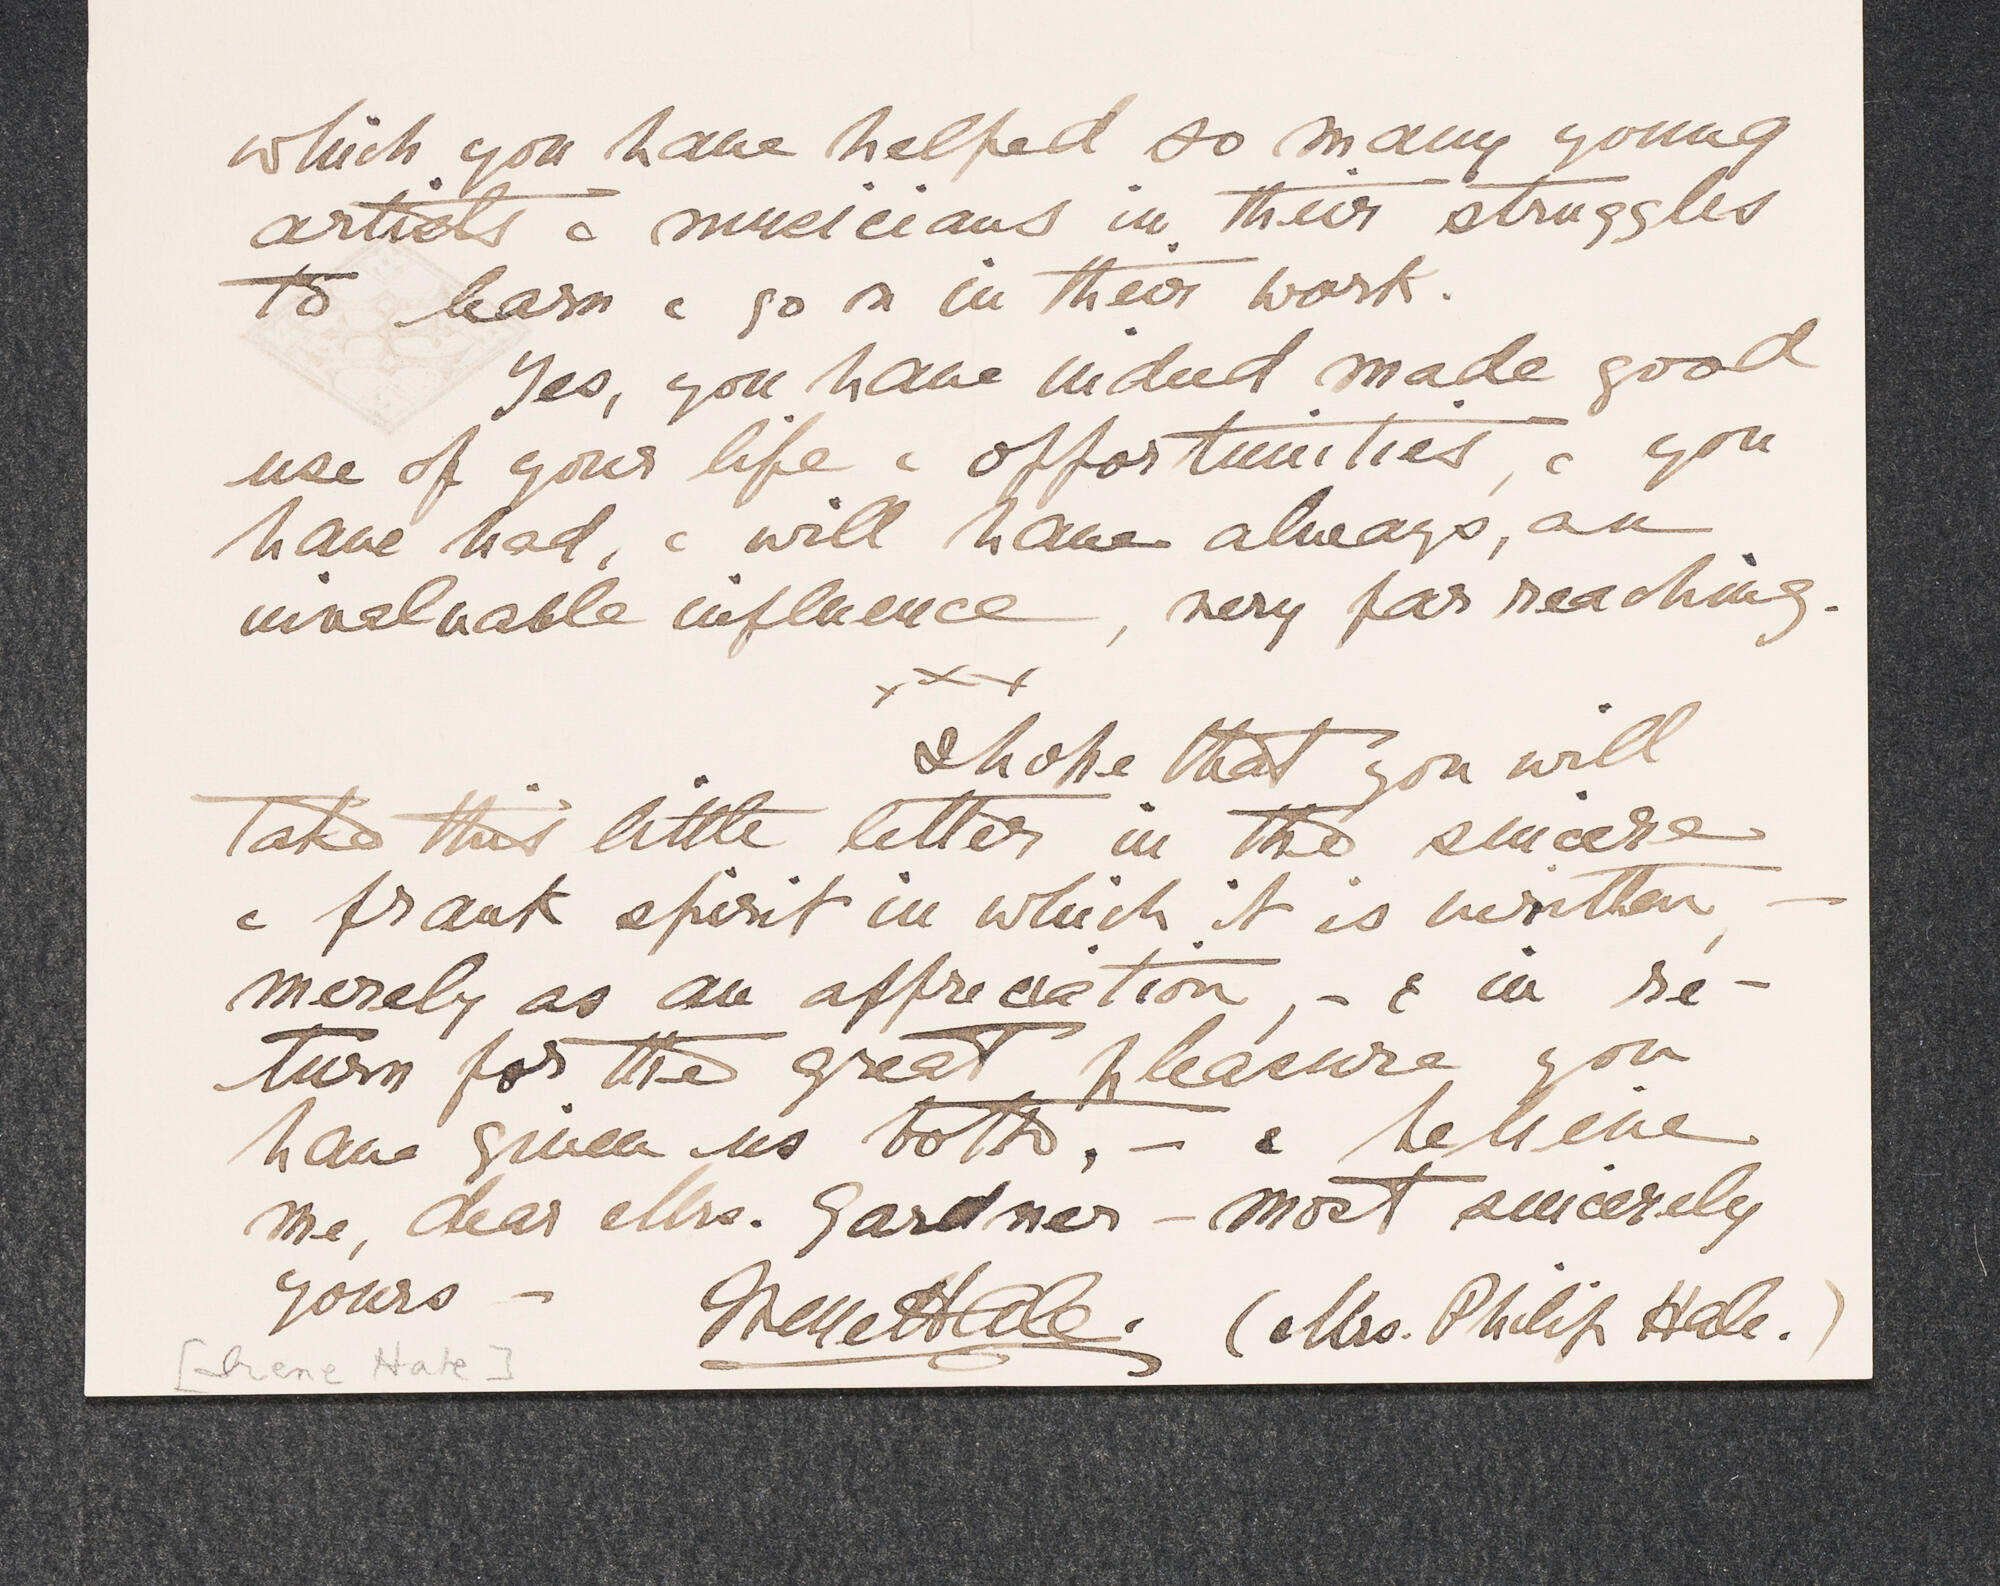 which you have helped so many young
artists & musicians in their struggles
to learn & go on in their work.
Yes, you have indeed made good
use of your life & opportunities, & you
have had, & will have always, an
invaluable influence, very far reaching.
xxx
I hope that you will
take this little letter in the sincere
& frank spirit in which it is written, —
merely as an appreciation, - & in re-
turn for the great pleasure you
have given us both, — & believe
me, dear Mrs. Gardner — most sincerely
yours — Irene Hale. (Mrs. Philip Hale.)
[Irene Hale]